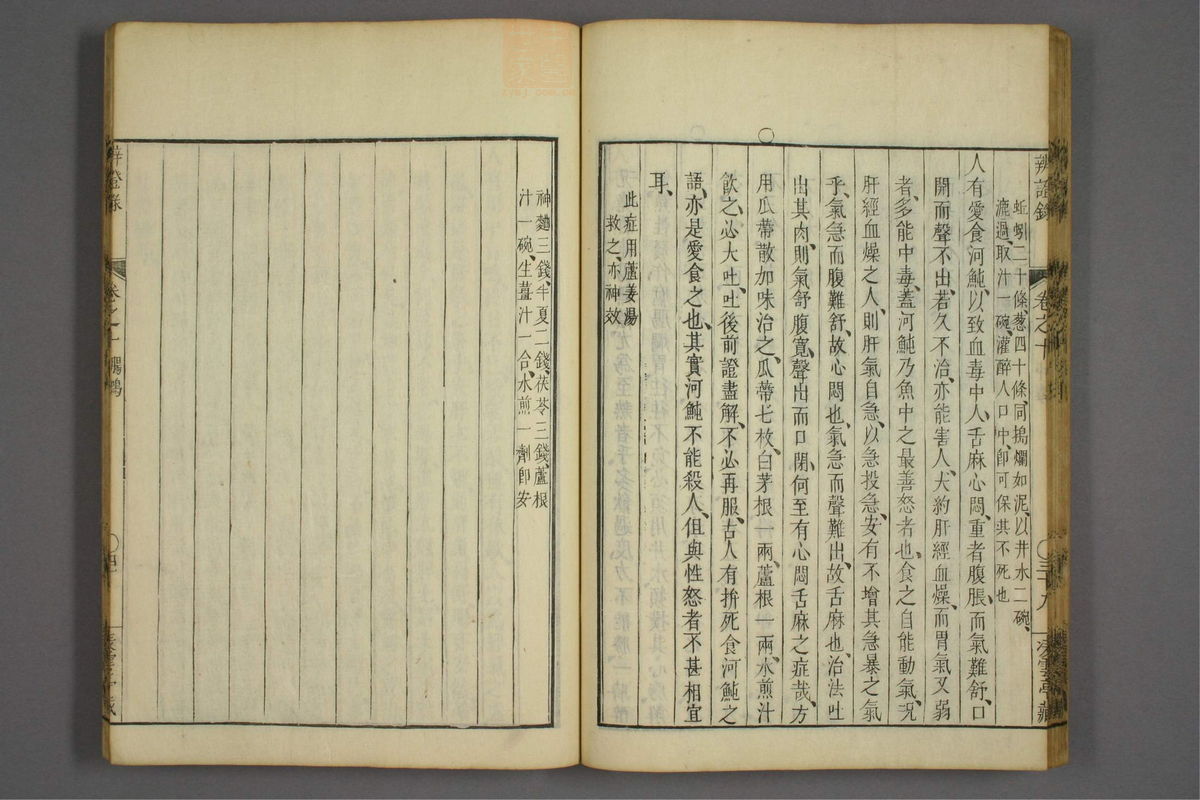 辨證錄 卷之十 三十八
蚯蚓二十條、葱四十條、同搗爛如泥、以井水二碗、
漉過、取汁一碗、灌醉人口中、卽可保其不死也
人有愛食河魨、以致血毒中人、舌麻心悶、重者腹脹、而氣難舒、口
開而聲不出、若久不治、亦能害人、大約肝經血燥、而胃氣又弱
者、多能中毒、蓋河魨乃魚中之最善怒者也、食之自能動氣、況
肝經血燥之人、則肝氣自急、以急投急、安有不增其急暴之氣
乎、氣急而腹難舒、故心悶也、氣急而聲難出、故舌麻也、治法吐
出其肉、則氣舒腹寬、聲出而口閉、何至有心悶舌麻之症哉、方
用瓜蒂散加味治之、瓜蒂七枚、白茅根一兩、蘆根一兩、水煎汁
飲之、必大吐、吐後前證盡解、不必再服、古人有拚死食河魨之
語、亦是愛食之也、其實河魨不能殺人、但與性怒者不甚相宜
耳、
此症用蘆姜湯
救之、亦神效
神麯三錢、半夏二錢、茯苓三錢、蘆根
汁一碗、生薑汁一合、水煎一劑卽安